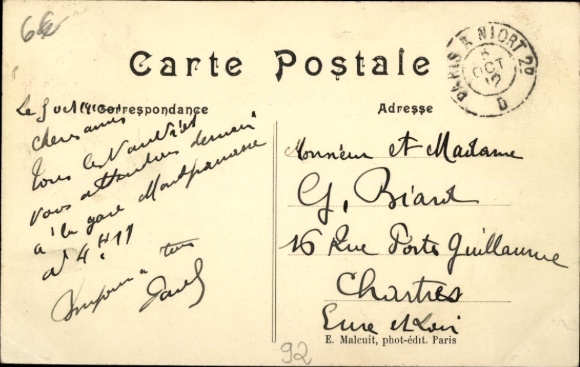 6€
Carte Postale
PARIS A NIORT 2°
5
OCT
12
D
Correspondance
Adresse
Le 5 oct
Chers amis
Tous les
vous attendrons demain
à la gare Montparnasse
à 4h11
Bonjour à tous
Paul
Monsieur et Madame
G. Biard
16 Rue Porte Guillaume
Chartres
Eure et Loir
E. Malcuit, phot-édit. Paris
92